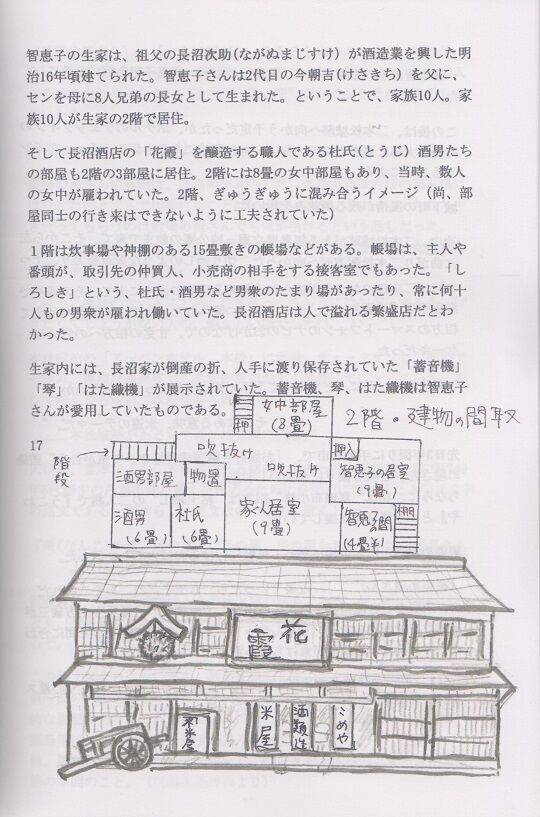 智恵子の生家は、祖父の長沼次助(ながぬまじすけ)が酒造業を興した明
治16年頃建てられた。智恵子さんは2代目の今朝吉(けさきち)を父に、
センを母に8人兄弟の長女として生まれた。ということで、家族10人。家
族10人が生家の2階で居住。
そして長沼酒店の「花霞」を醸造する職人である杜氏(とうじ)酒男たち
の部屋も2階の3部屋に居住。2階には8畳の女中部屋もあり、当時、数人
の女中が雇われていた。2階、ぎゅうぎゅうに混み合うイメージ(尚、部
屋同士の行き来はできないように工夫されていた)
１階は炊事場や神棚のある15畳敷きの帳場などがある。帳場は、主人や
番頭が、取引先の仲買人、小売商の相手をする接客室でもあった。「し
ろしき」という、杜氏・酒男など男衆のたまり場があったり、常に何十
人もの男衆が雇われ働いていた。長沼酒店は人で溢れる繁盛店だとわ
かった。
生家内には、長沼家が倒産の折、人手に渡り保存されていた「蓄音機」
「琴」「はた織機」が展示されていた。蓄音機、琴、はた織機は智恵子
さんが愛用していたものである。
17
2階・建物の間取
女中部屋
(8畳)
押
階段
吹抜け
吹抜け
押入
智恵子の居室
(9畳)
酒男部屋
物置
酒男
(6畳)
杜氏
(6畳)
家人居室
(9畳)
智恵子の間
(4畳半)
棚
花
霞
米屋
酒類造
こめや